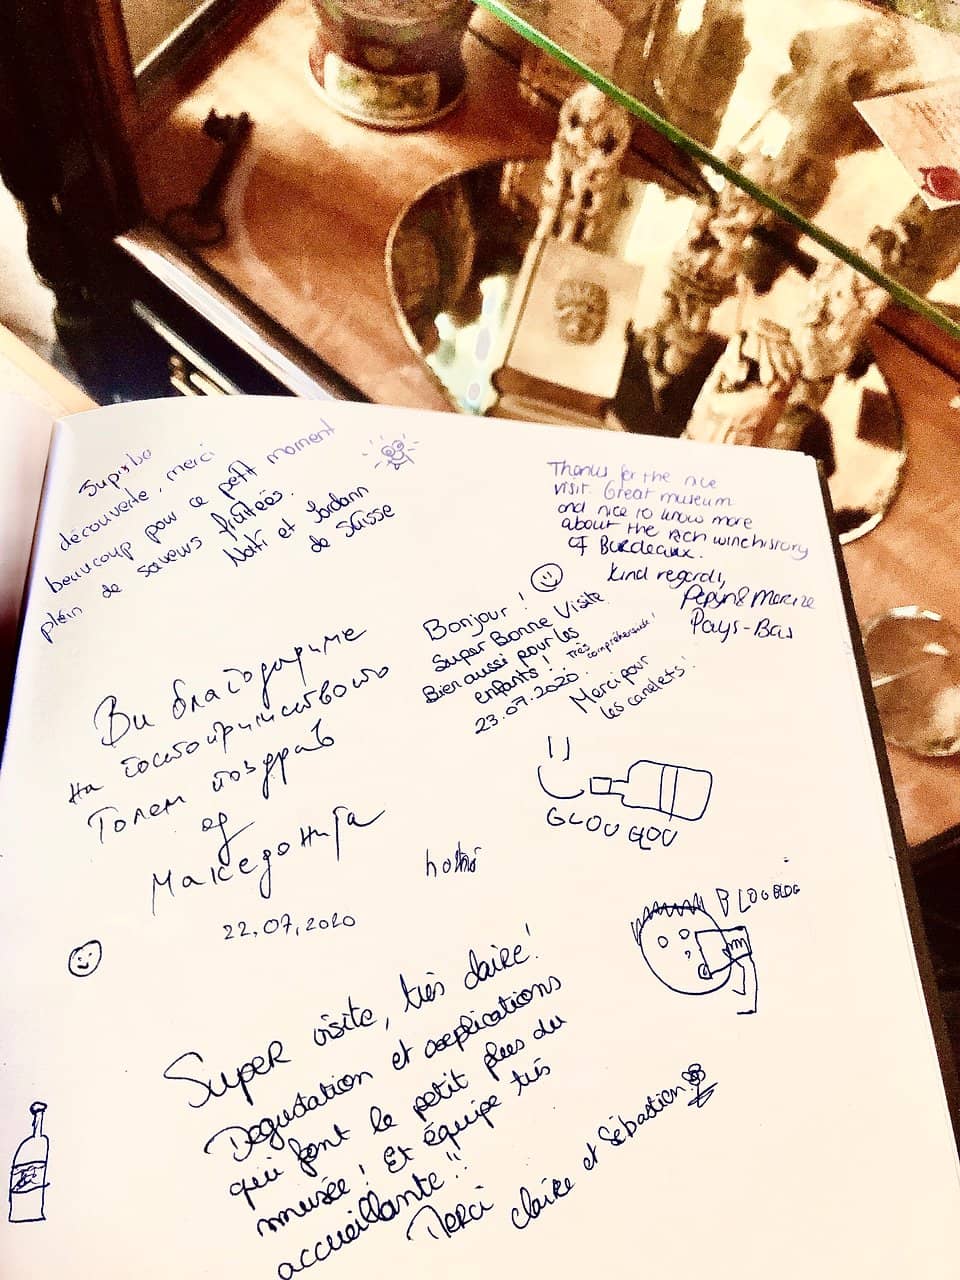 Superbe
découverte, merci
beaucoup pour ce petit moment
plein de saveurs fruitées.
et Jordann
de Suisse
Thanks for the nice
visit. Great museum
and nice to know more
about the rich winehistory
of Bordeaux.
kind regards,
Pepijn &
Pays-Bas
Bonjour!
Super Bonne Visite
Bien aussi pour les
enfants! Très compréhensible!
23.07.2020.
Merci pour
les canelets!
Ви благодариме
на гостопримството
Голем поздрав
од
Македонија
22.07.2020
GLOU GLOU
BLOUBLOG
Super visite, très claire!
Dégustation et explications
qui font le petit plus du
musée! Et équipe très
accueillante!!
Merci
Claire et Sébastien